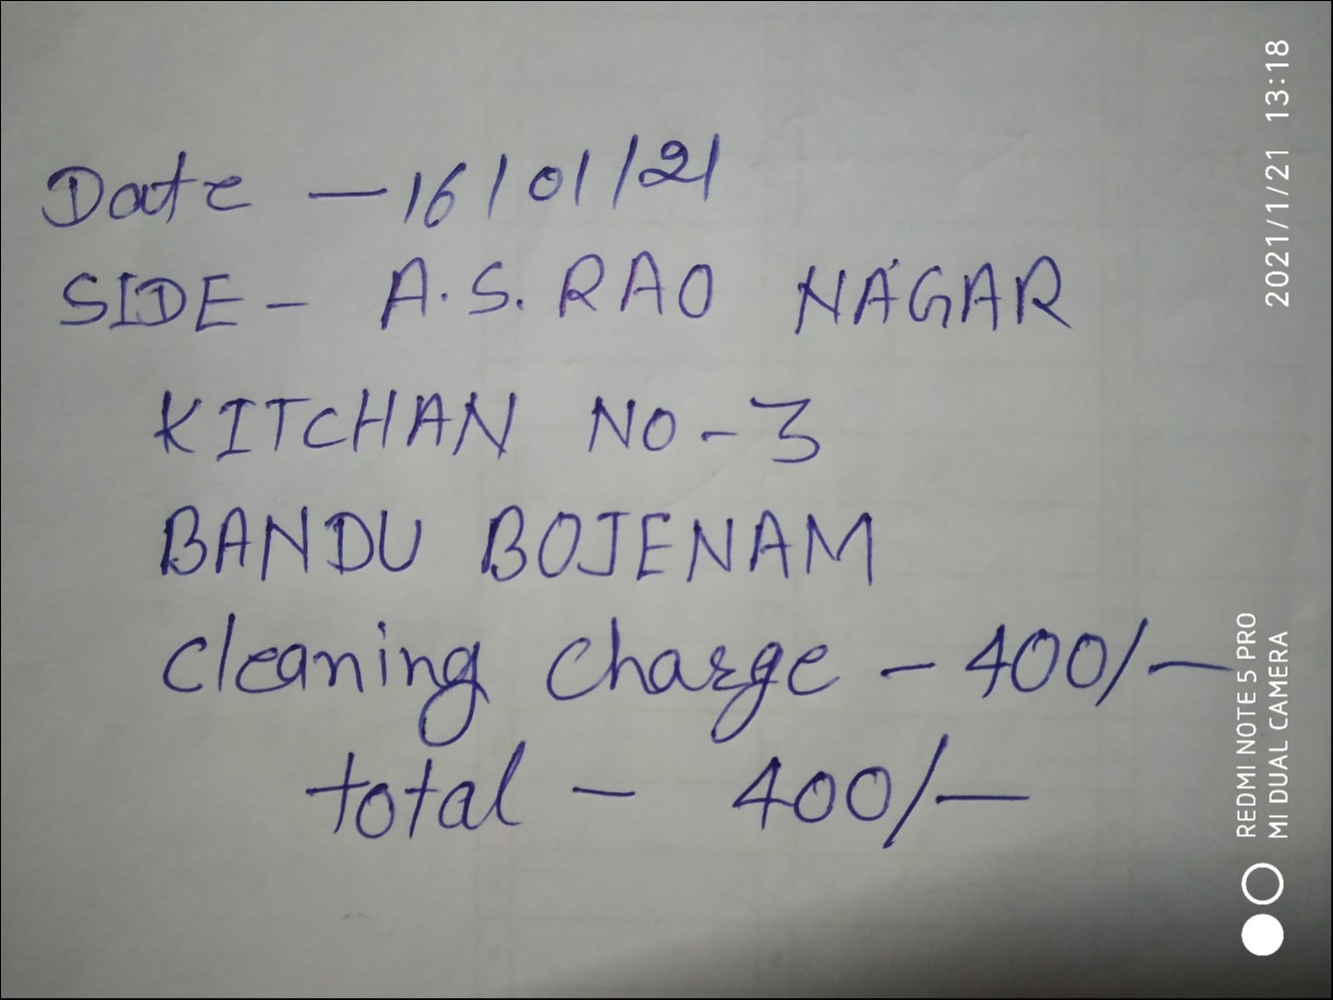 Date - 16/01/21
SIDE - A.S. RAO NAGAR
KITCHAN NO-3
BANDU BOJENAM
cleaning charge - 400/-
total - 400/-
2021/1/21 13:18
REDMI NOTE 5 PRO
MI DUAL CAMERA